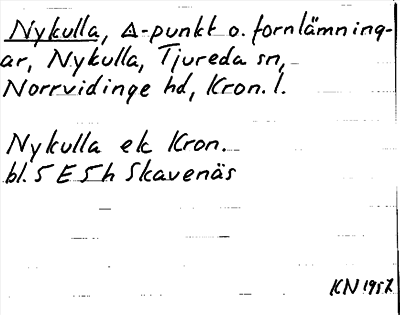 Nykulla, Δ-punkt o. fornlämning-
ar, Nykulla, Tjureda sn,
Norrvidinge hd, Kron. l.
Nykulla ek Kron.
bl. 5 E 5 h Skavenäs
KN 1957